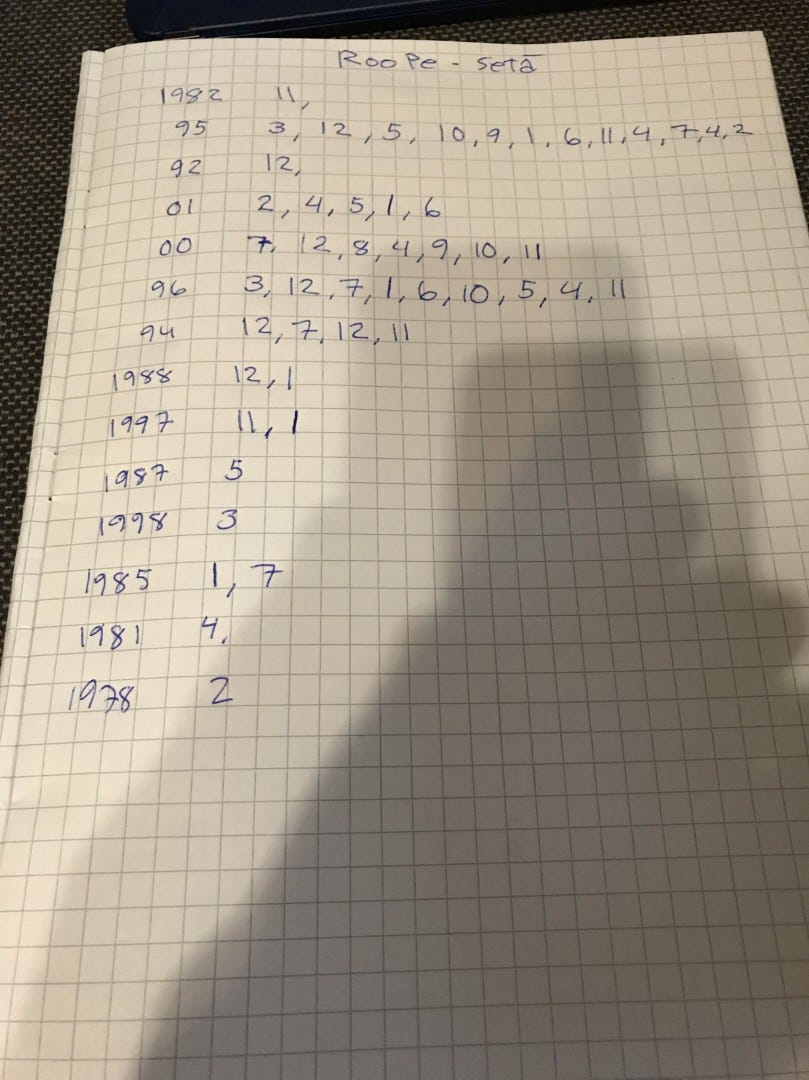 Roope - setä
1982 11,
95 3, 12, 5, 10, 9, 1, 6, 11, 4, 7, 4, 2
92 12,
01 2, 4, 5, 1, 6
00 7, 12, 8, 4, 9, 10, 11
96 3, 12, 7, 1, 6, 10, 5, 4, 11
94 12, 7, 12, 11
1988 12, 1
1997 11, 1
1987 5
1998 3
1985 1, 7
1981 4,
1978 2